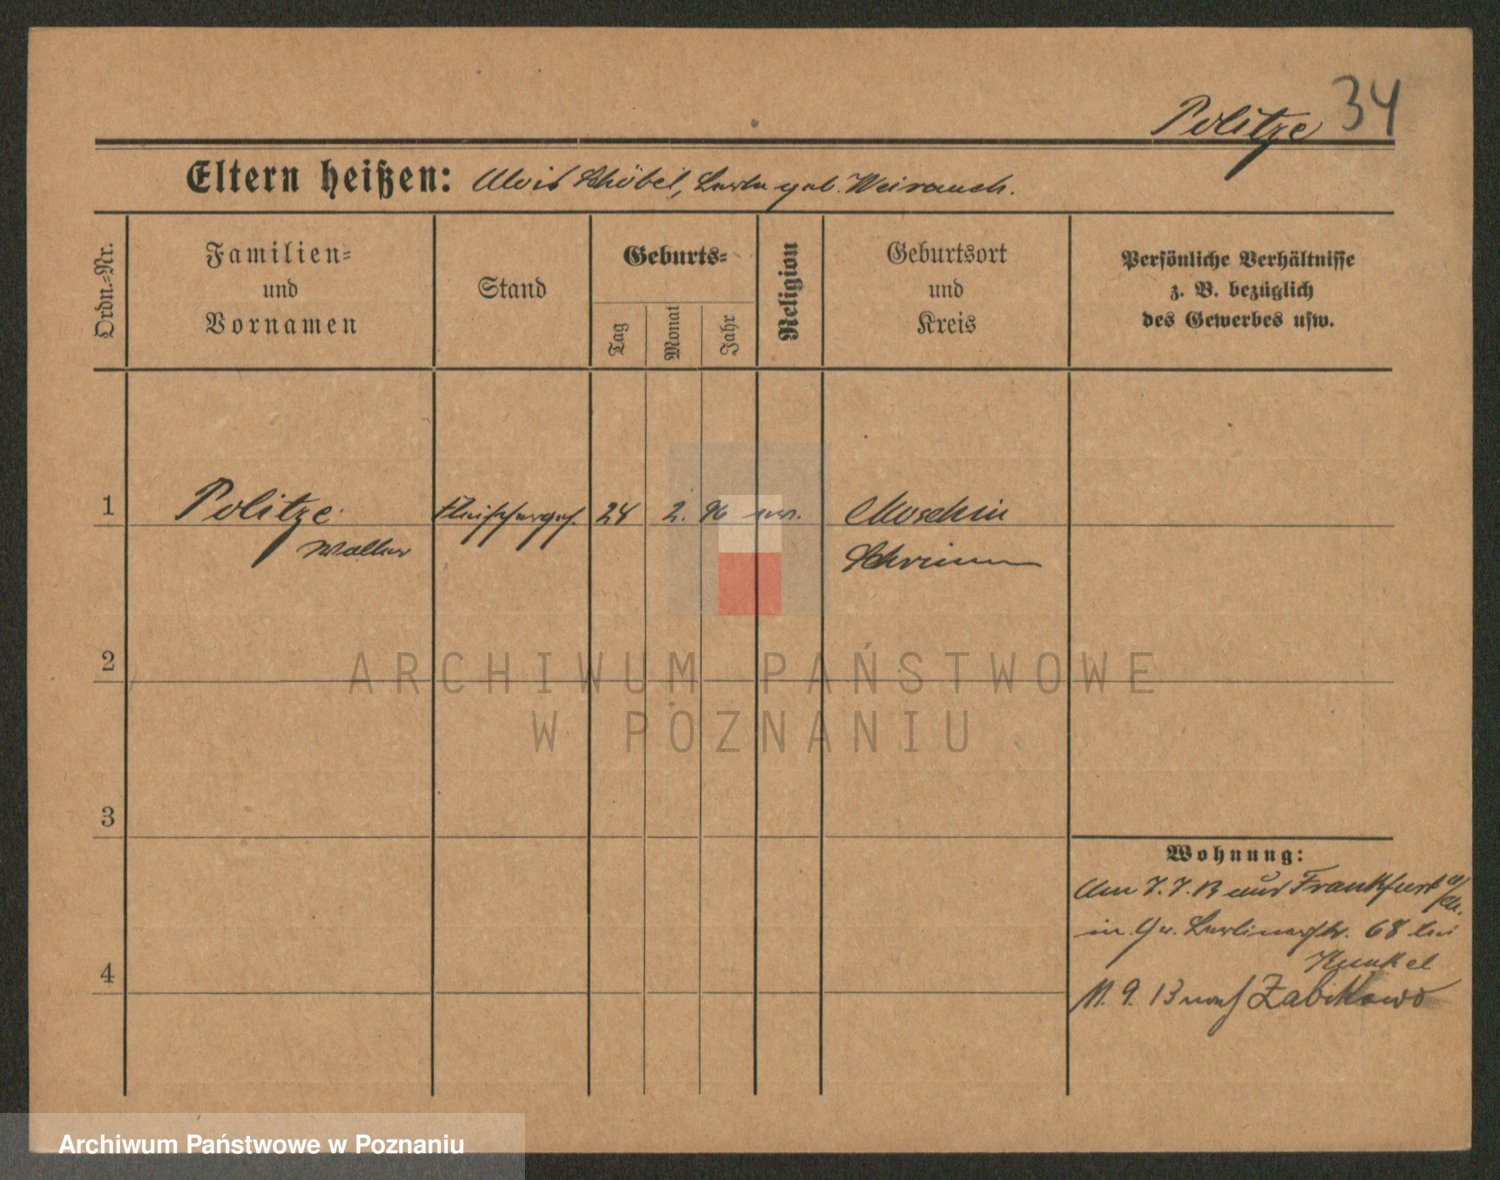 Politze 34
Eltern heißen: Alois Schöbel, geb. Weirauch.
Ordn.=Nr.
Familien=
und
Vornamen
Stand
Geburts=
Tag
Monat
Jahr
Religion
Geburtsort
und
Kreis
Persönliche Verhältnisse
z. B. bezüglich
des Gewerbes usw.
1 Politze Fleischerges. 24 2. 96 ev. Moschin
Walter Schrimm
2
3
4
Wohnung:
Am 7.7.13 aus Frankfurt a/M.
in Gr. Berlinerstr. 68 bei
Kunkel
11. 9. 13 nach Zabikowo
ARCHIWUM PAŃSTWOWE
W POZNANIU
Archiwum Państwowe w Poznaniu